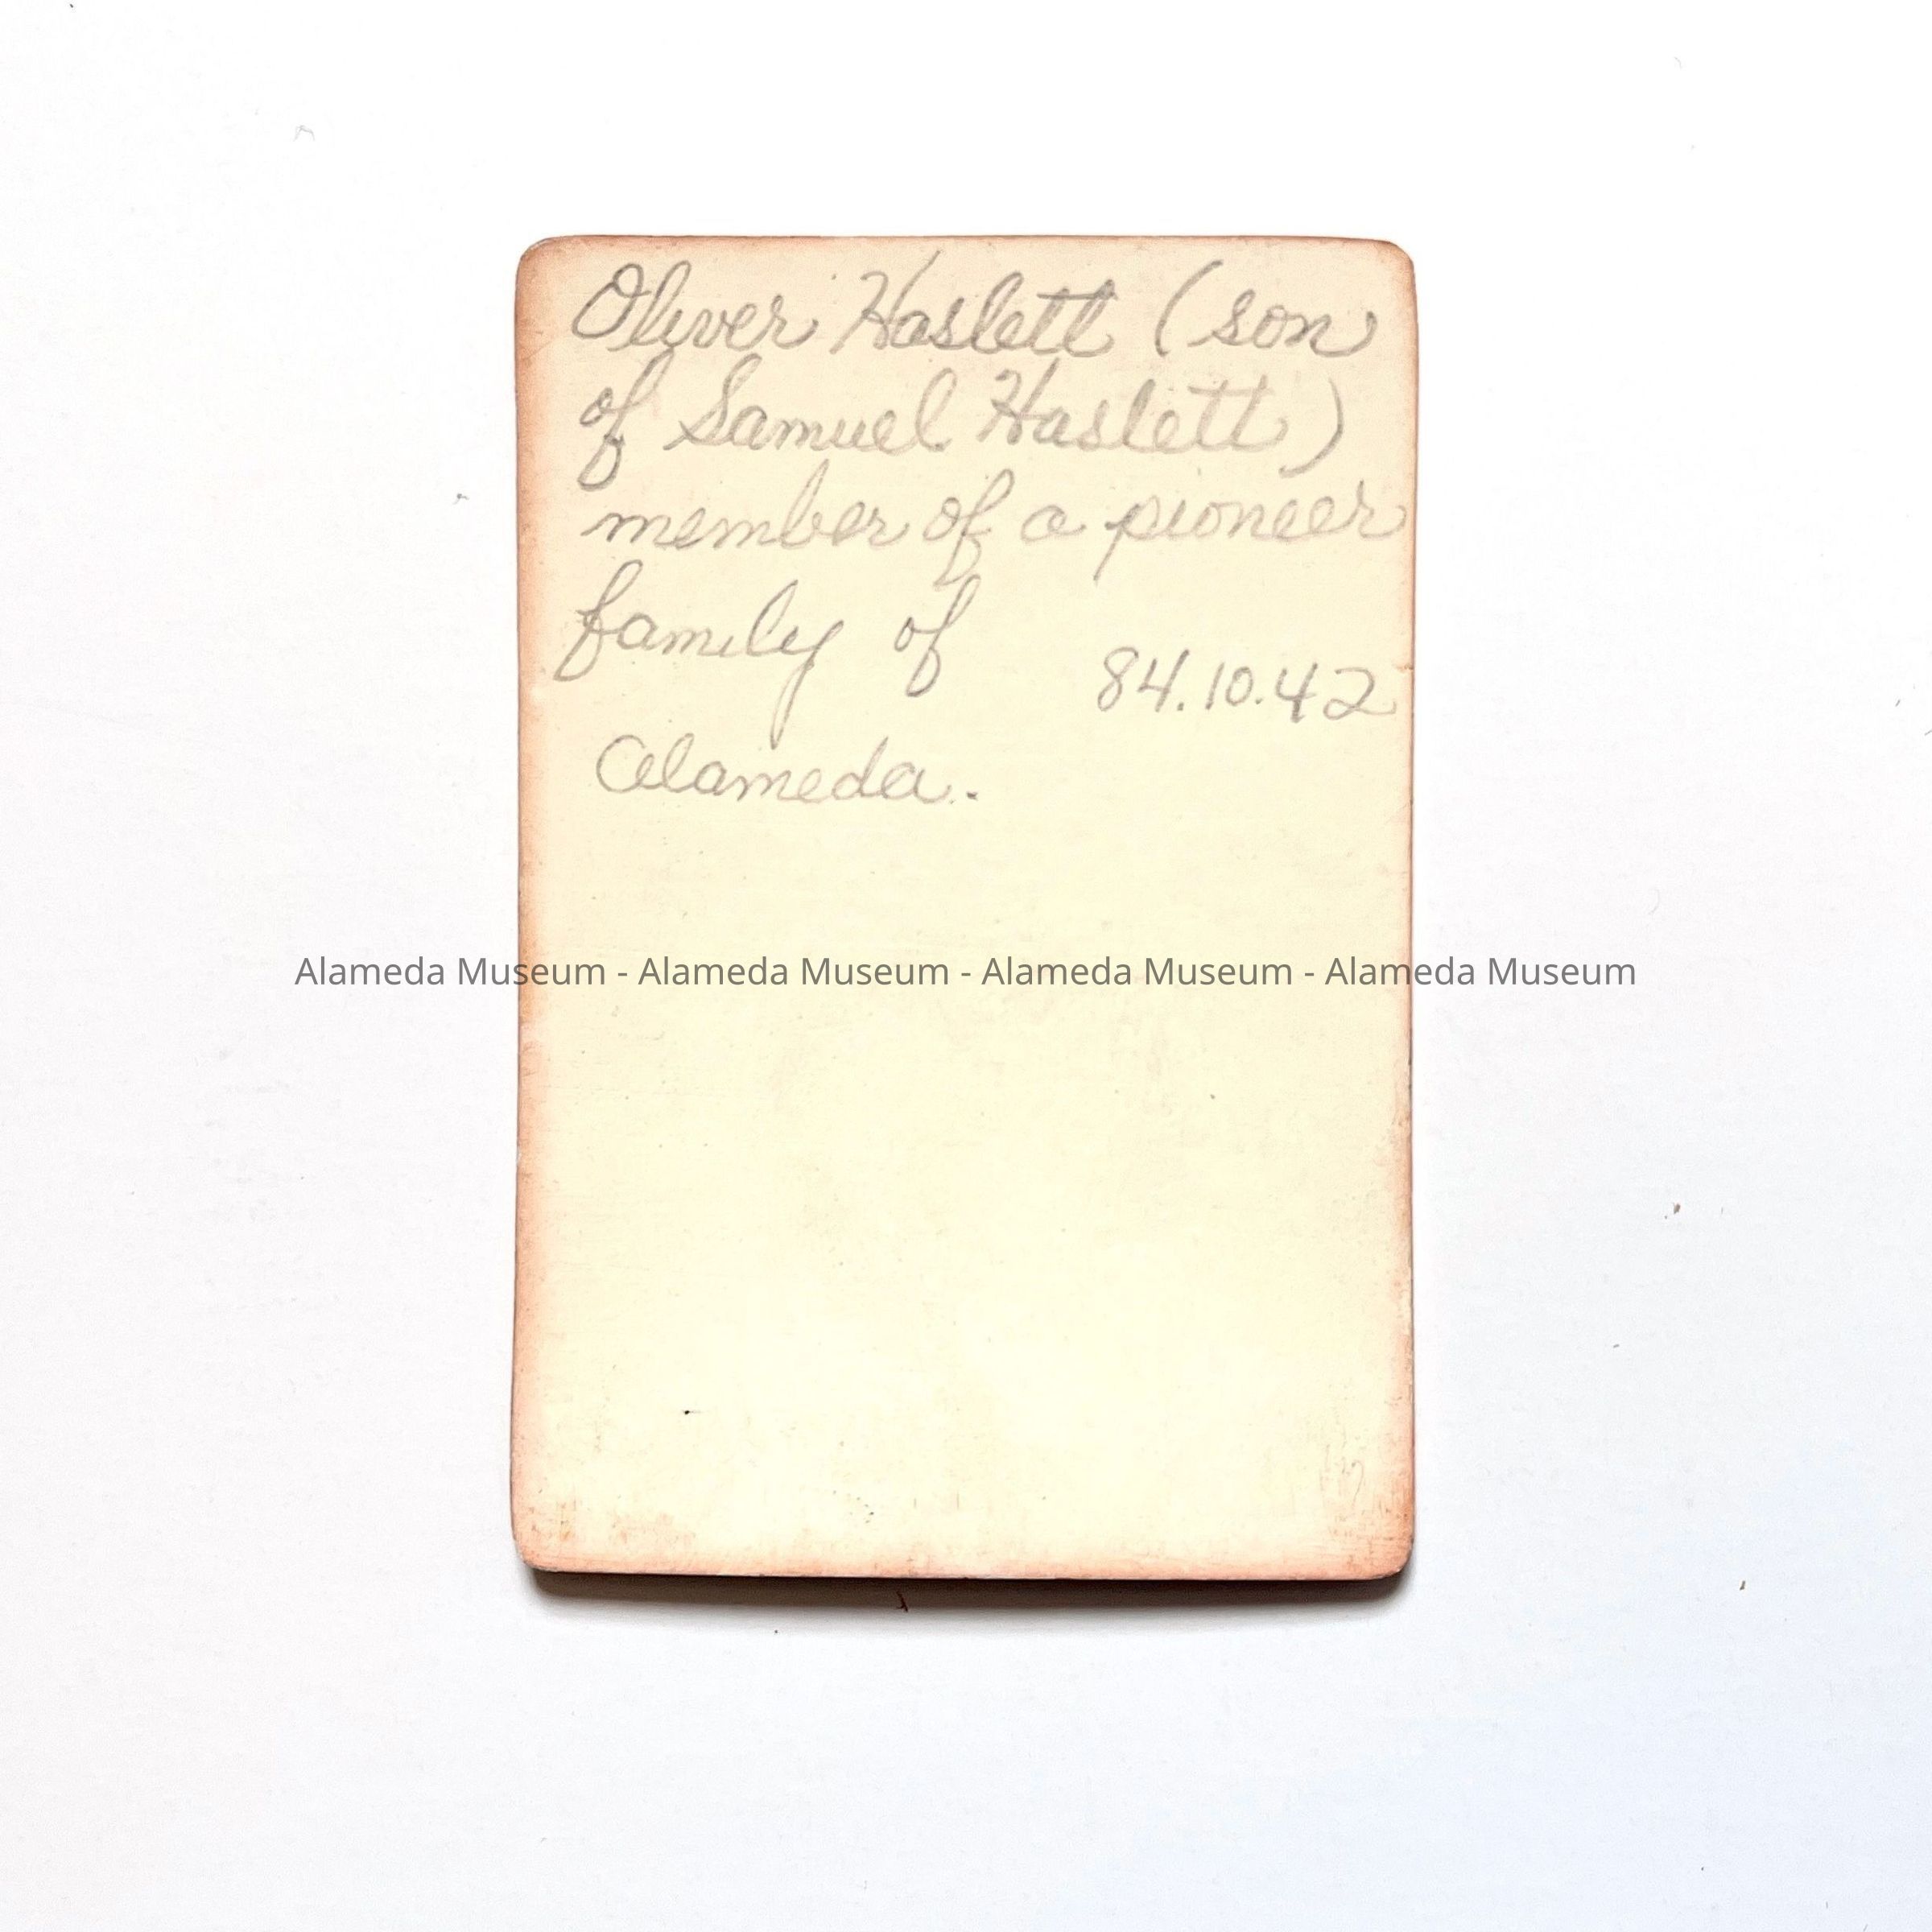 Oliver Haslett (son
of Samuel Haslett)
member of a pioneer
family of
84.10.42
Alameda.
Alameda Museum - Alameda Museum - Alameda Museum - Alameda Museum